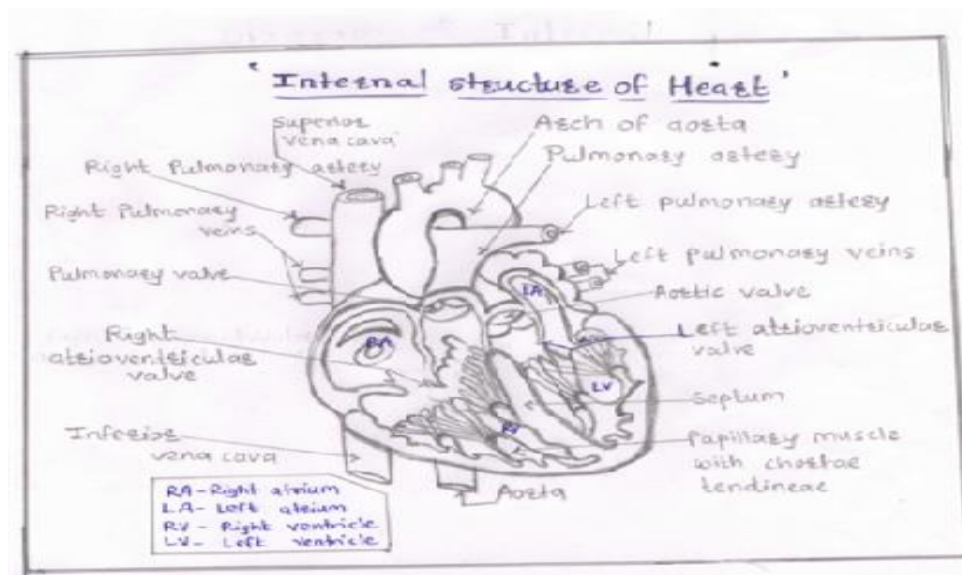 'Internal structure of Heart'
Superior
vena cava
Arch of aorta
Right Pulmonary artery
Pulmonary artery
Right Pulmonary
veins
Left pulmonary artery
Left pulmonary veins
Pulmonary valve
Aortic valve
LA
Right
atrioventricular
valve
RA
Left atrioventricular
valve
LV
Septum
RV
Inferior
vena cava
Papillary muscle
with chortae
tendineae
Aorta
RA-Right atrium
LA- Left atrium
RV - Right ventricle
LV- Left ventricle